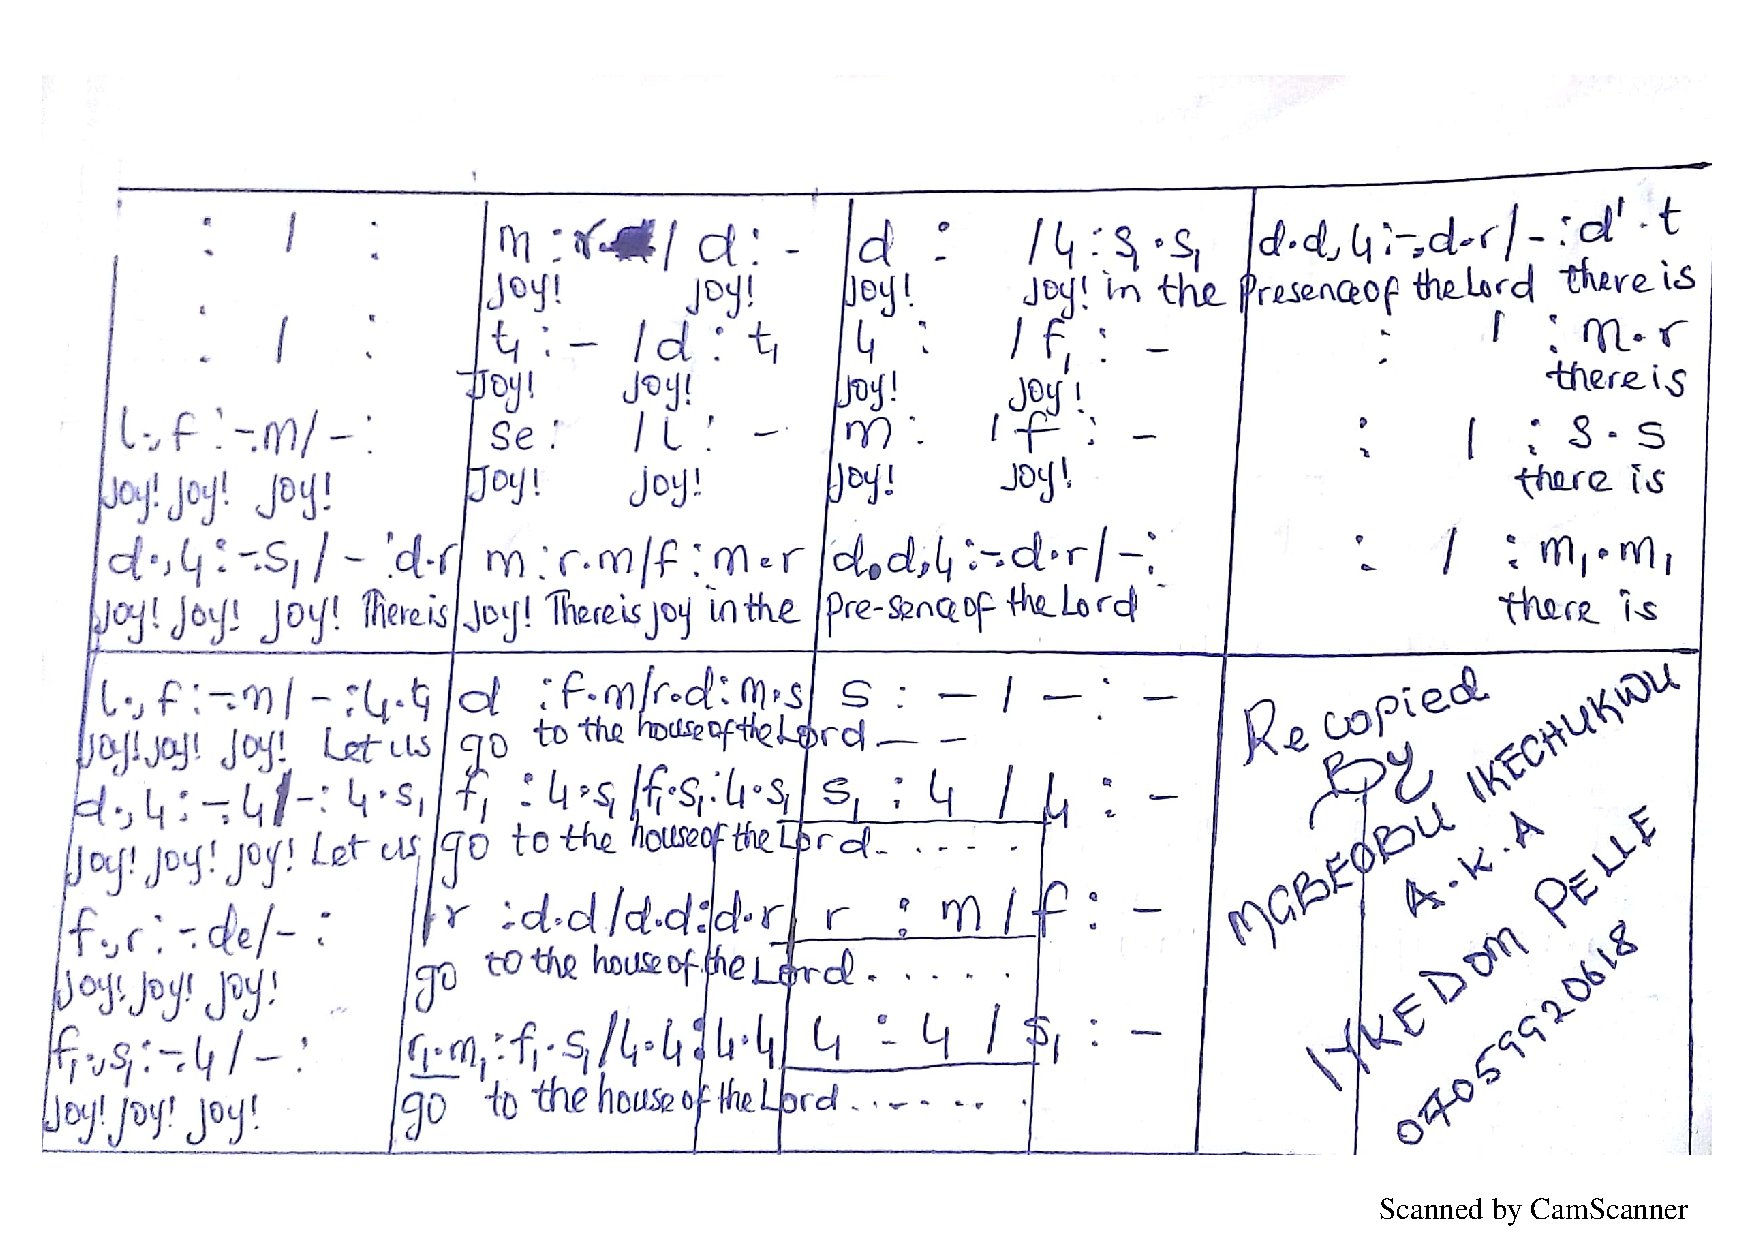 : / : m : r. / d : - d : / l₁ : s₁ . s₁ d.d,l₁:-,d.r/-:d'.t
Joy! Joy! Joy! Joy! in the Presence of the Lord there is
: / : t₁ : - / d : t₁ l₁ : / f₁ : - : / : m.r
Joy! Joy! Joy! Joy! there is
l.,f:-.m/-: se : / l : - m : / f : - : / : s.s
Joy! Joy! Joy! Joy! Joy! Joy! Joy! there is
d.,l₁:-.s₁/-:d.r m:r.m/f:m.r d.d,l₁:-.d.r/-: : / : m₁.m₁
Joy! Joy! Joy! There is Joy! There is joy in the Pre-sence of the Lord there is
l.,f:-.m/-:l₁.t₁ d :f.m/r.d:m.s s : - / - : -
Joy! Joy! Joy! Let us go to the house of the Lord — —
d.,l₁:-.l₁/-:l₁.s₁ f₁ :l₁.s₁/f₁.s₁:l₁.s₁ s₁ : l₁ / l₁ : -
Joy! Joy! Joy! Let us go to the house of the Lord.....
f.,r:-.de/-: r :d.d/d.d:d.r r : m / f : -
Joy! Joy! Joy! go to the house of the Lord......
f₁.,s₁:-.l₁/-: r₁.m₁:f₁.s₁/l₁.l₁:l₁.l₁ l₁ : l₁ / s₁ : -
Joy! Joy! Joy! go to the house of the Lord.......
Recopied
By
MGBEOBU IKECHUKWU
A.K.A
IYKE DOM PELLE
07059920618
Scanned by CamScanner